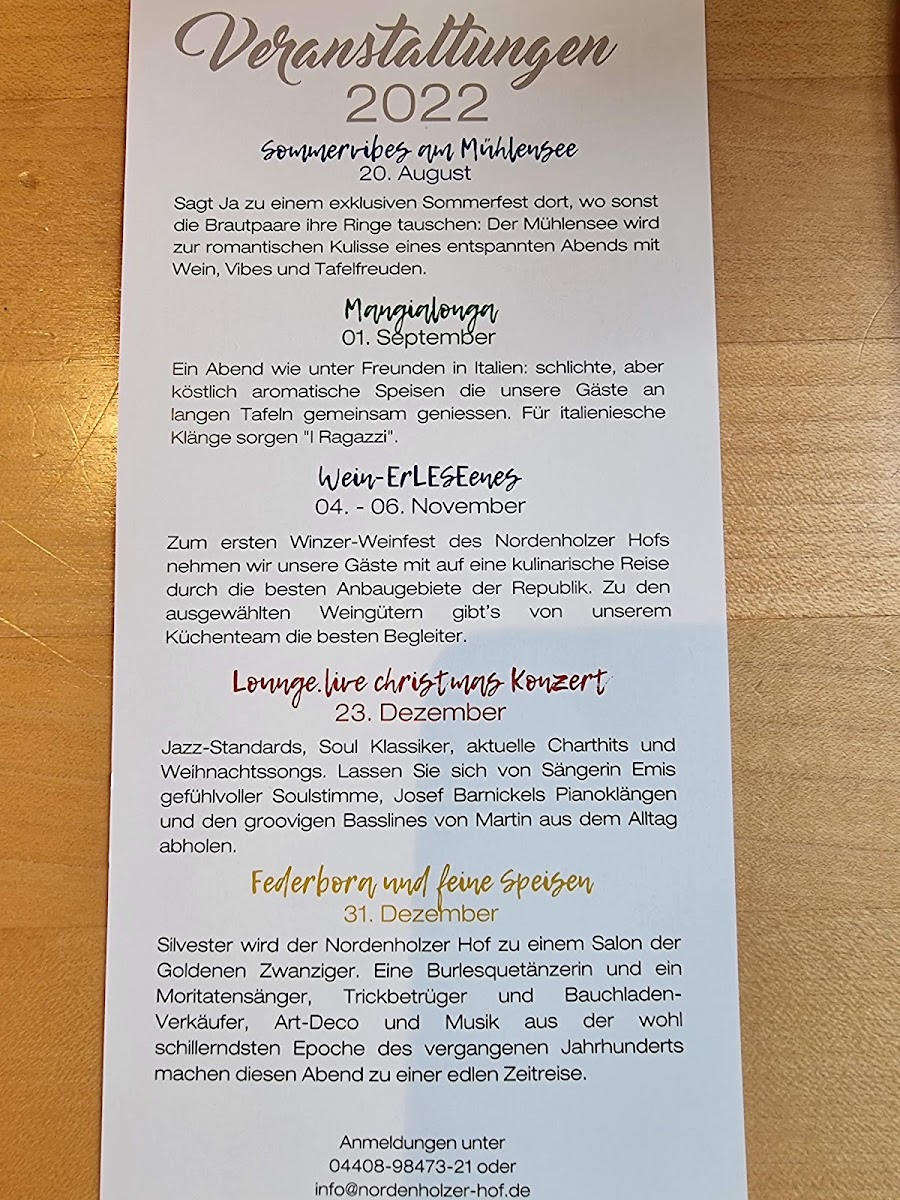 Veranstaltungen
2022
Sommervibes am Mühlensee
20. August
Sagt Ja zu einem exklusiven Sommerfest dort, wo sonst
die Brautpaare ihre Ringe tauschen: Der Mühlensee wird
zur romantischen Kulisse eines entspannten Abends mit
Wein, Vibes und Tafelfreuden.
Mangialonga
01. September
Ein Abend wie unter Freunden in Italien: schlichte, aber
köstlich aromatische Speisen die unsere Gäste an
langen Tafeln gemeinsam geniessen. Für italieniesche
Klänge sorgen "I Ragazzi".
Wein-ErLESEenes
04. - 06. November
Zum ersten Winzer-Weinfest des Nordenholzer Hofs
nehmen wir unsere Gäste mit auf eine kulinarische Reise
durch die besten Anbaugebiete der Republik. Zu den
ausgewählten Weingütern gibt's von unserem
Küchenteam die besten Begleiter.
Lounge.live christmas Konzert
23. Dezember
Jazz-Standards, Soul Klassiker, aktuelle Charthits und
Weihnachtssongs. Lassen Sie sich von Sängerin Emis
gefühlvoller Soulstimme, Josef Barnickels Pianoklängen
und den groovigen Basslines von Martin aus dem Alltag
abholen.
Federbora und feine Speisen
31. Dezember
Silvester wird der Nordenholzer Hof zu einem Salon der
Goldenen Zwanziger. Eine Burlesquetänzerin und ein
Moritatensänger, Trickbetrüger und Bauchladen-
Verkäufer, Art-Deco und Musik aus der wohl
schillerndsten Epoche des vergangenen Jahrhunderts
machen diesen Abend zu einer edlen Zeitreise.
Anmeldungen unter
04408-98473-21 oder
info@nordenholzer-hof.de